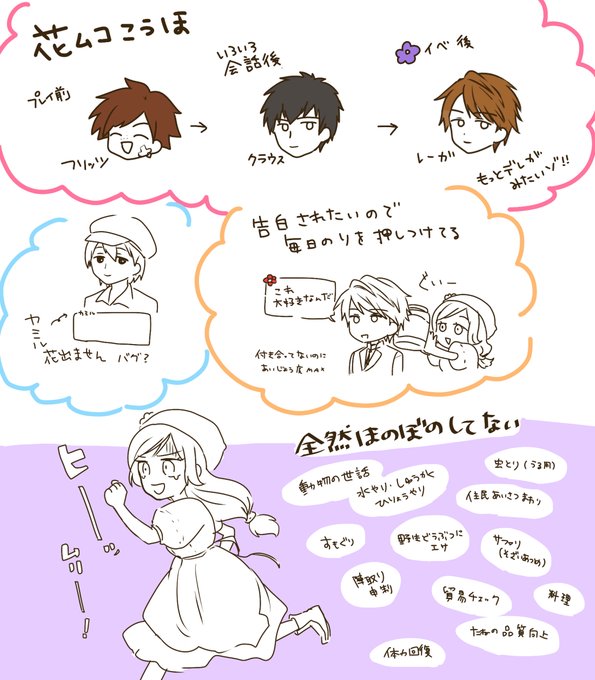 花ムコこうほ
プレイ前
フリッツ
→
いろいろ
会話後
クラウス
→
イベ後
レーガ
もっとデレが
みたいゾ!!
カミル
カミル
花出ません バグ?
告白されたいので
毎日のりを押しつけてる
これ
大好きなんだ
ぐいー
付き合ってないのに
あいじょう度MAX
全然ほのぼのしてない
ヒーーッ
ムリーー!
動物の世話
水やり・しゅうかく
ひりょうやり
虫とり(うる用)
住民あいさつまわり
すもぐり
野生どうぶつに
エサ
サファリ
(そざいあつめ)
陣取り
申請
貿易チェック
料理
たねの品質向上
体力回復